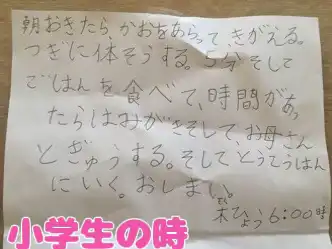 朝おきたら、かおをあらって、きがえる。
つぎに体そうする。5分そして
ごはんを食べて、時間があっ
たらはみがきそして、お母さん
とぎゅうする。そして とうこうはん
にいく。おしまい。
木ひょう6:00時
小学生の時